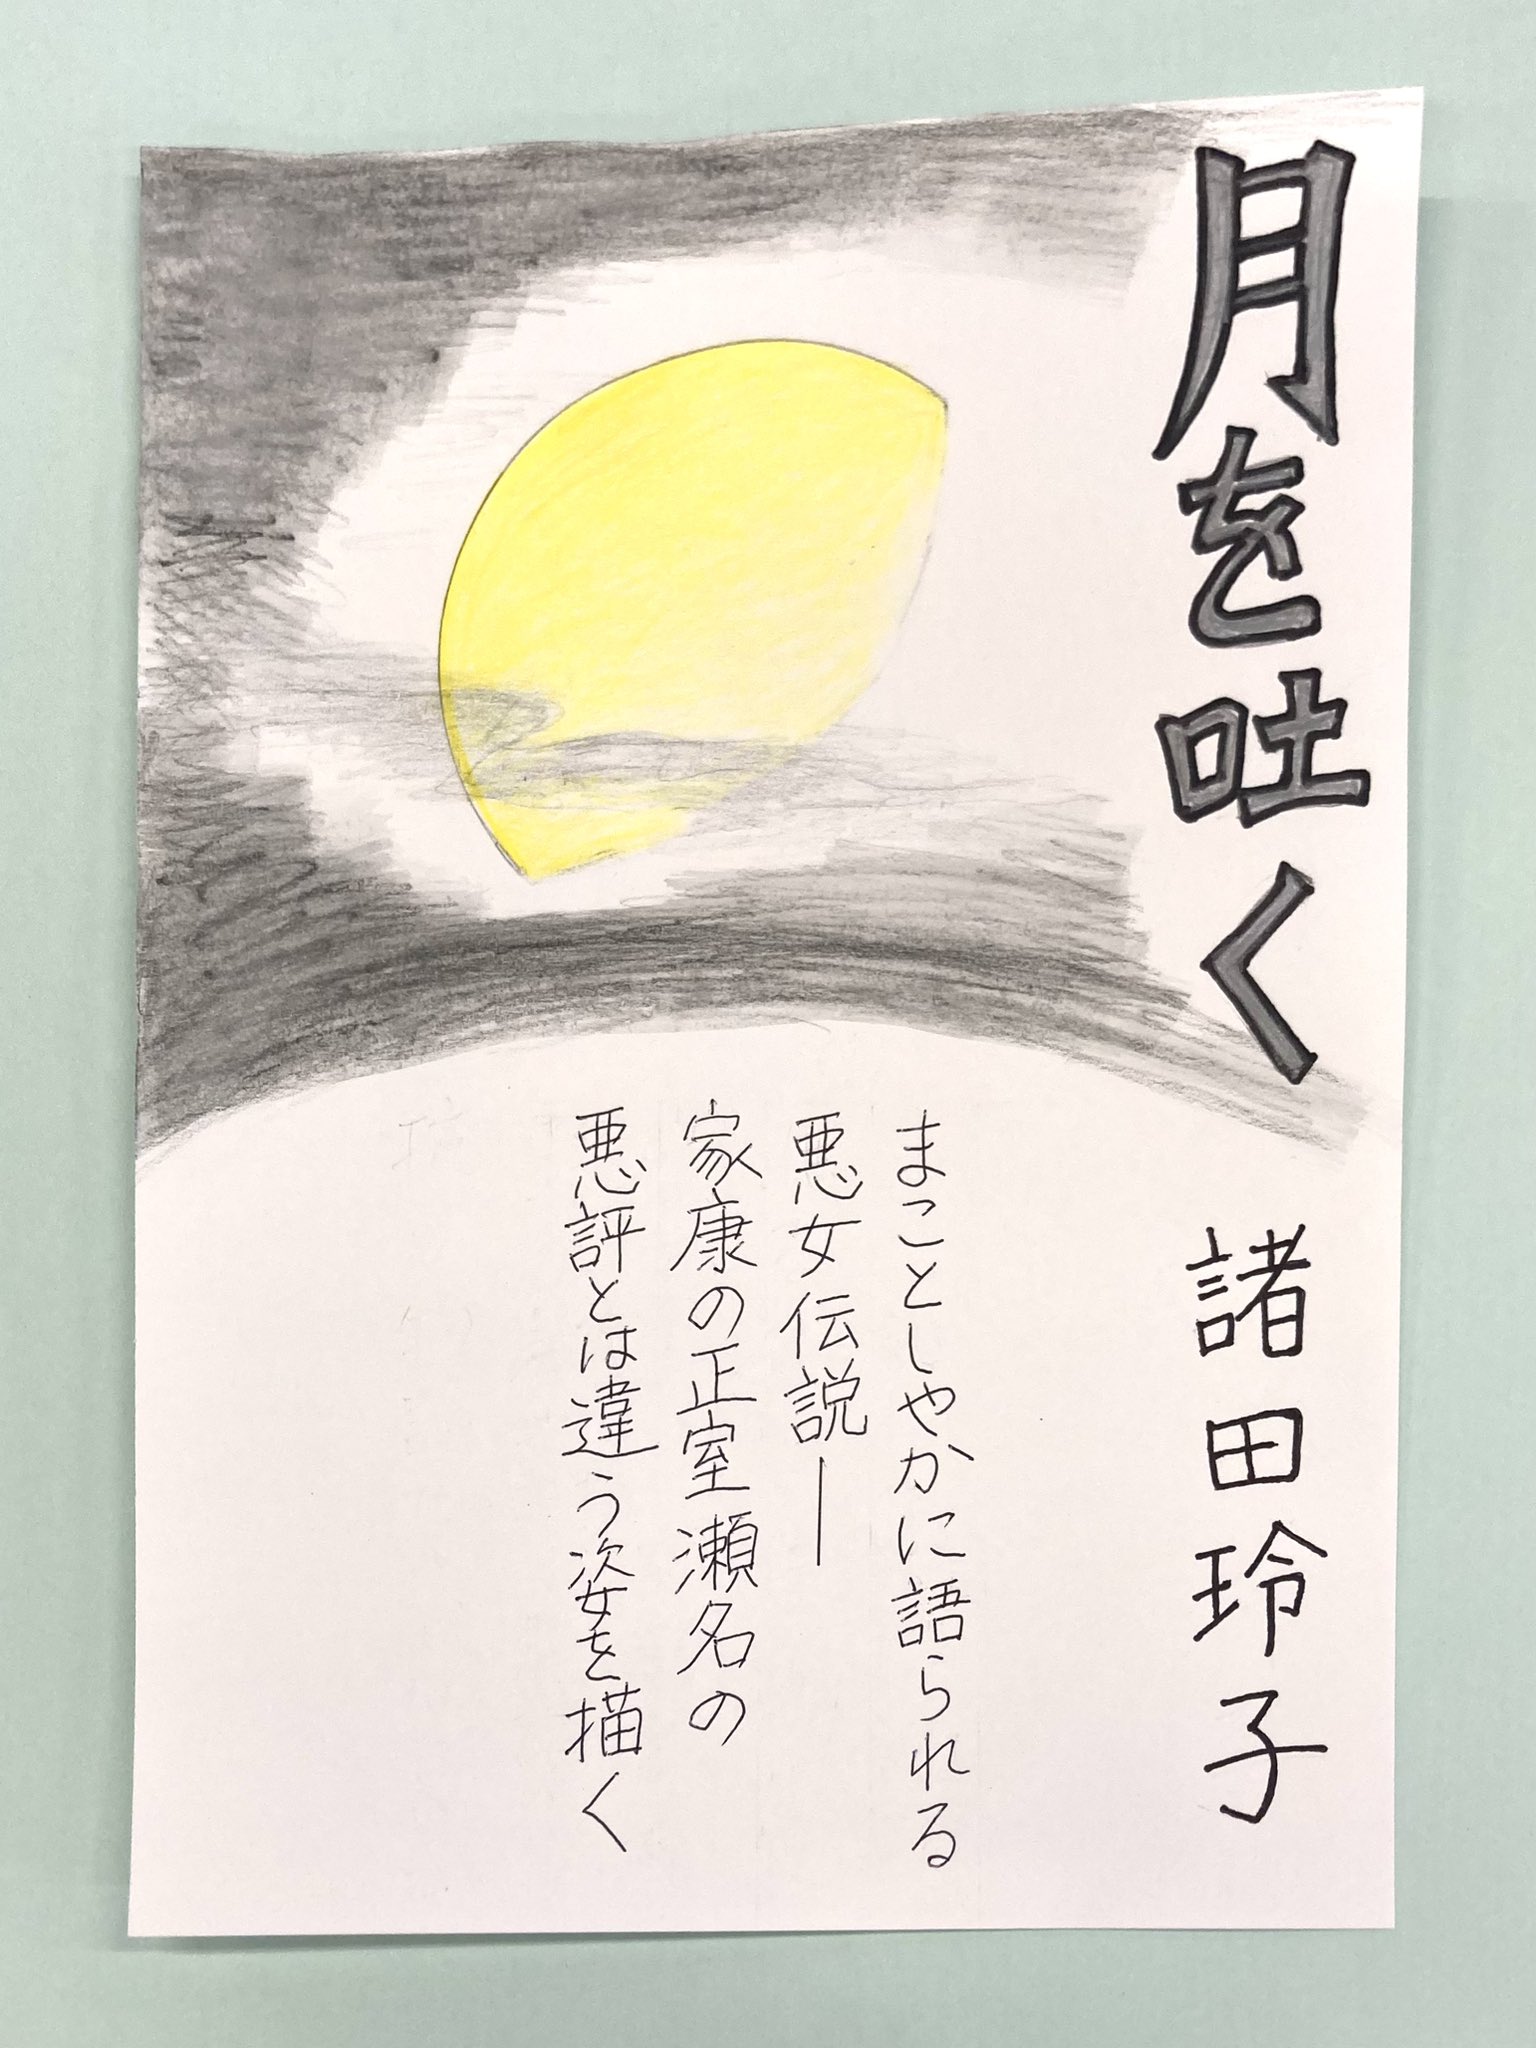 月を吐く
諸田玲子
まことしやかに語られる
悪女伝説―
家康の正室瀬名の
悪評とは違う姿を描く